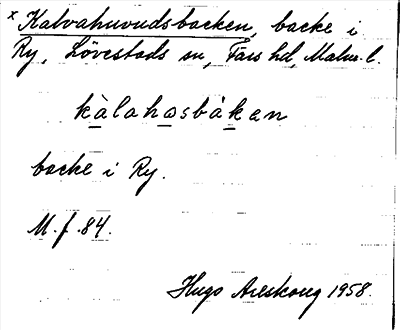 × Kalvahuvudsbacken, backe i
Ry, Lövestads sn, Färs hd, Malm. l.
kàlahɑsbàkan
backe i Ry.
M. f. 84.
Hugo Areskoug 1958.